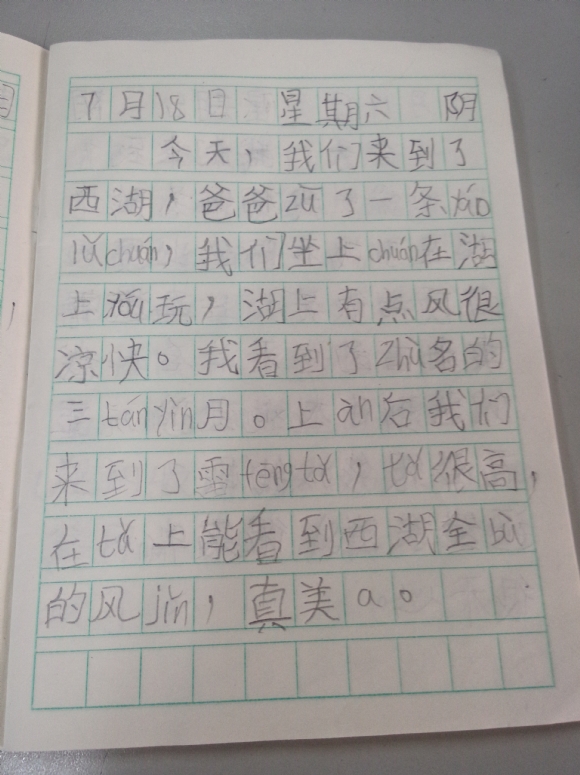 7月18日 星期六 阴
今天，我们来到了
西湖，爸爸zū了一条yáo
lǔchuán，我们坐上chuán在湖
上yóu玩，湖上有点风很
凉快。我看到了zhù名的
三tányìn月。上àn后我们
来到了雷fēngtǎ，tǎ很高，
在tǎ上能看到西湖全bù
的风jǐn，真美a。